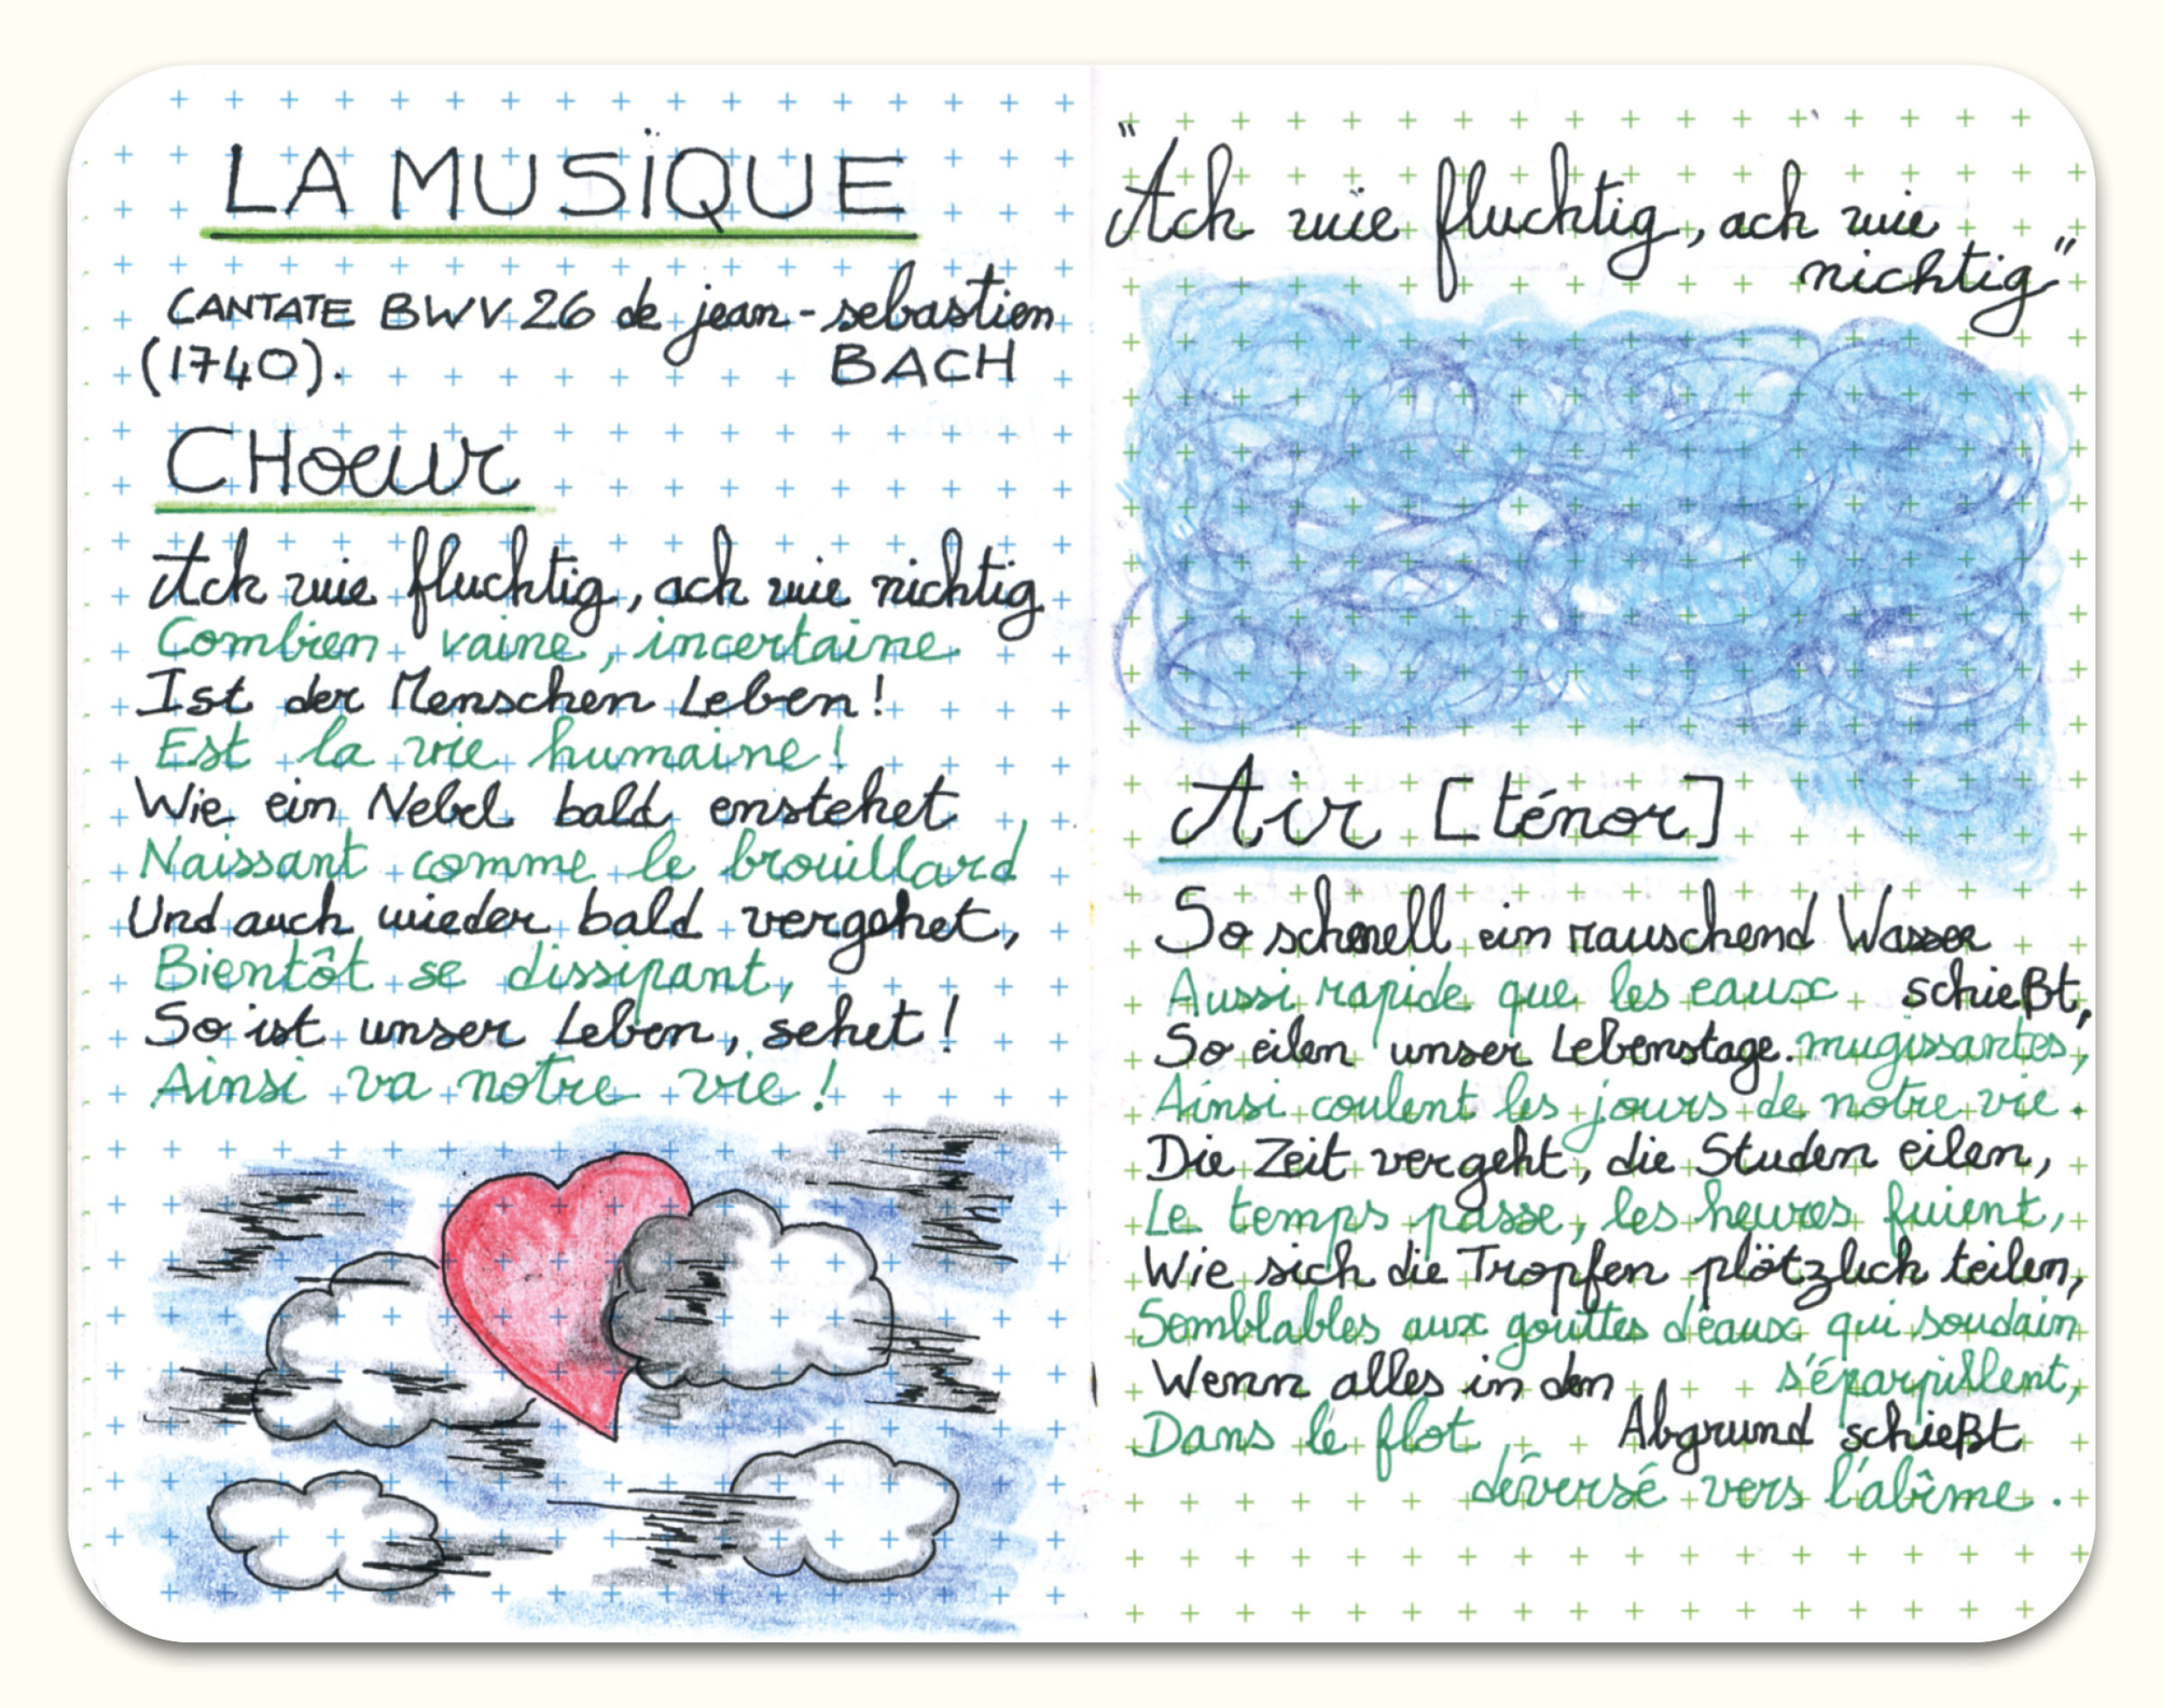 LA MUSIQUE
CANTATE BWV 26 de jean-sebastien
(1740). BACH
CHOEUR
Ach wie fluchtig, ach wie nichtig
Combien vaine, incertaine
Ist der Menschen Leben!
Est la vie humaine!
Wie ein Nebel bald enstehet
Naissant comme le brouillard
Und auch wieder bald vergehet,
Bientôt se dissipant,
So ist unser Leben, sehet!
Ainsi va notre vie!
"Ach wie fluchtig, ach wie
nichtig"
Air [ténor]
So schnell ein rauschend Wasser
schießt,
Aussi rapide que les eaux
mugissantes,
So eilen unser Lebenstage.
Ainsi coulent les jours de notre vie.
Die Zeit vergeht, die Studen eilen,
Le temps passe, les heures fuient,
Wie sich die Tropfen plötzlich teilen,
Semblables aux gouttes d'eaux qui soudain
s'éparpillent,
Wenn alles in den
Abgrund schießt
Dans le flot
déversé vers l'abîme.